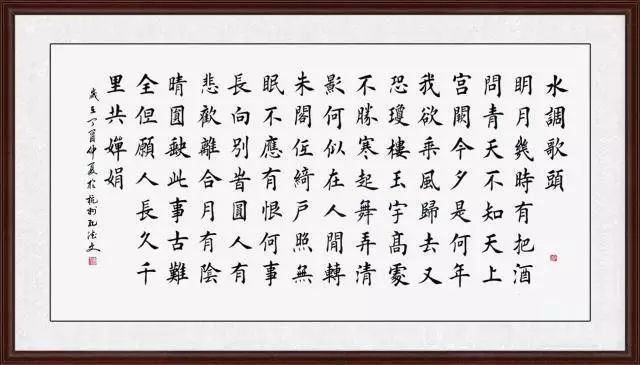 水調歌頭
明月幾時有把酒
問青天不知天上
宮闕今夕是何年
我欲乘風歸去又
恐瓊樓玉宇高處
不勝寒起舞弄清
影何似在人間轉
朱閣低綺戶照無
眠不應有恨何事
長向別旹圓人有
悲歡離合月有陰
晴圓缺此事古難
全但願人長久千
里共嬋娟
歲在丁酉仲夏於杭州孔